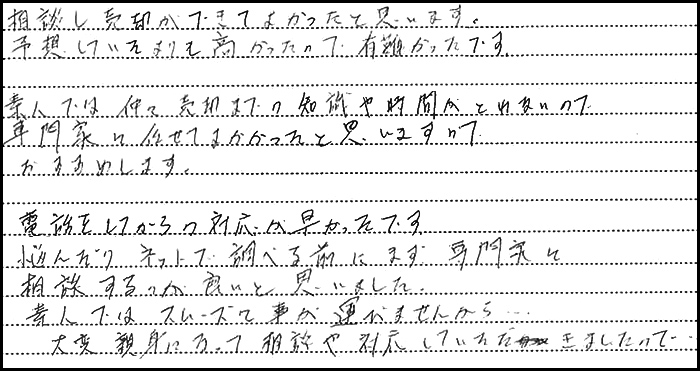 相談し売却ができてよかったと思います。
予想していたよりも高かったので有難かったです。
素人では 売却までの知識や時間がとれないので
専門家に任せてよかったと思いますので
おすすめします。
電話をしてからの対応が早かったです
悩んだり ネットで調べる前にまず専門家に
相談するのが良いと思いました。
素人ではスムーズに事が運びませんから…
大変親身になって相談や対応していただきましたので…